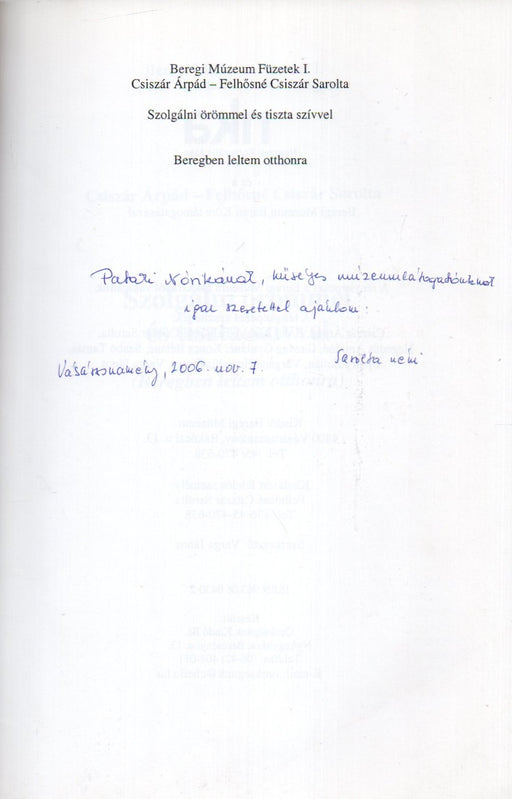 Beregi Múzeum Füzetek I.
Csiszár Árpád – Felhősné Csiszár Sarolta
Szolgálni örömmel és tiszta szívvel
Beregben leltem otthonra
Pataki Nórikának, hűséges múzeumlátogatónknak
igaz szeretettel ajánlom:
Sarolta néni
Vásárosnamény, 2006. nov. 7.